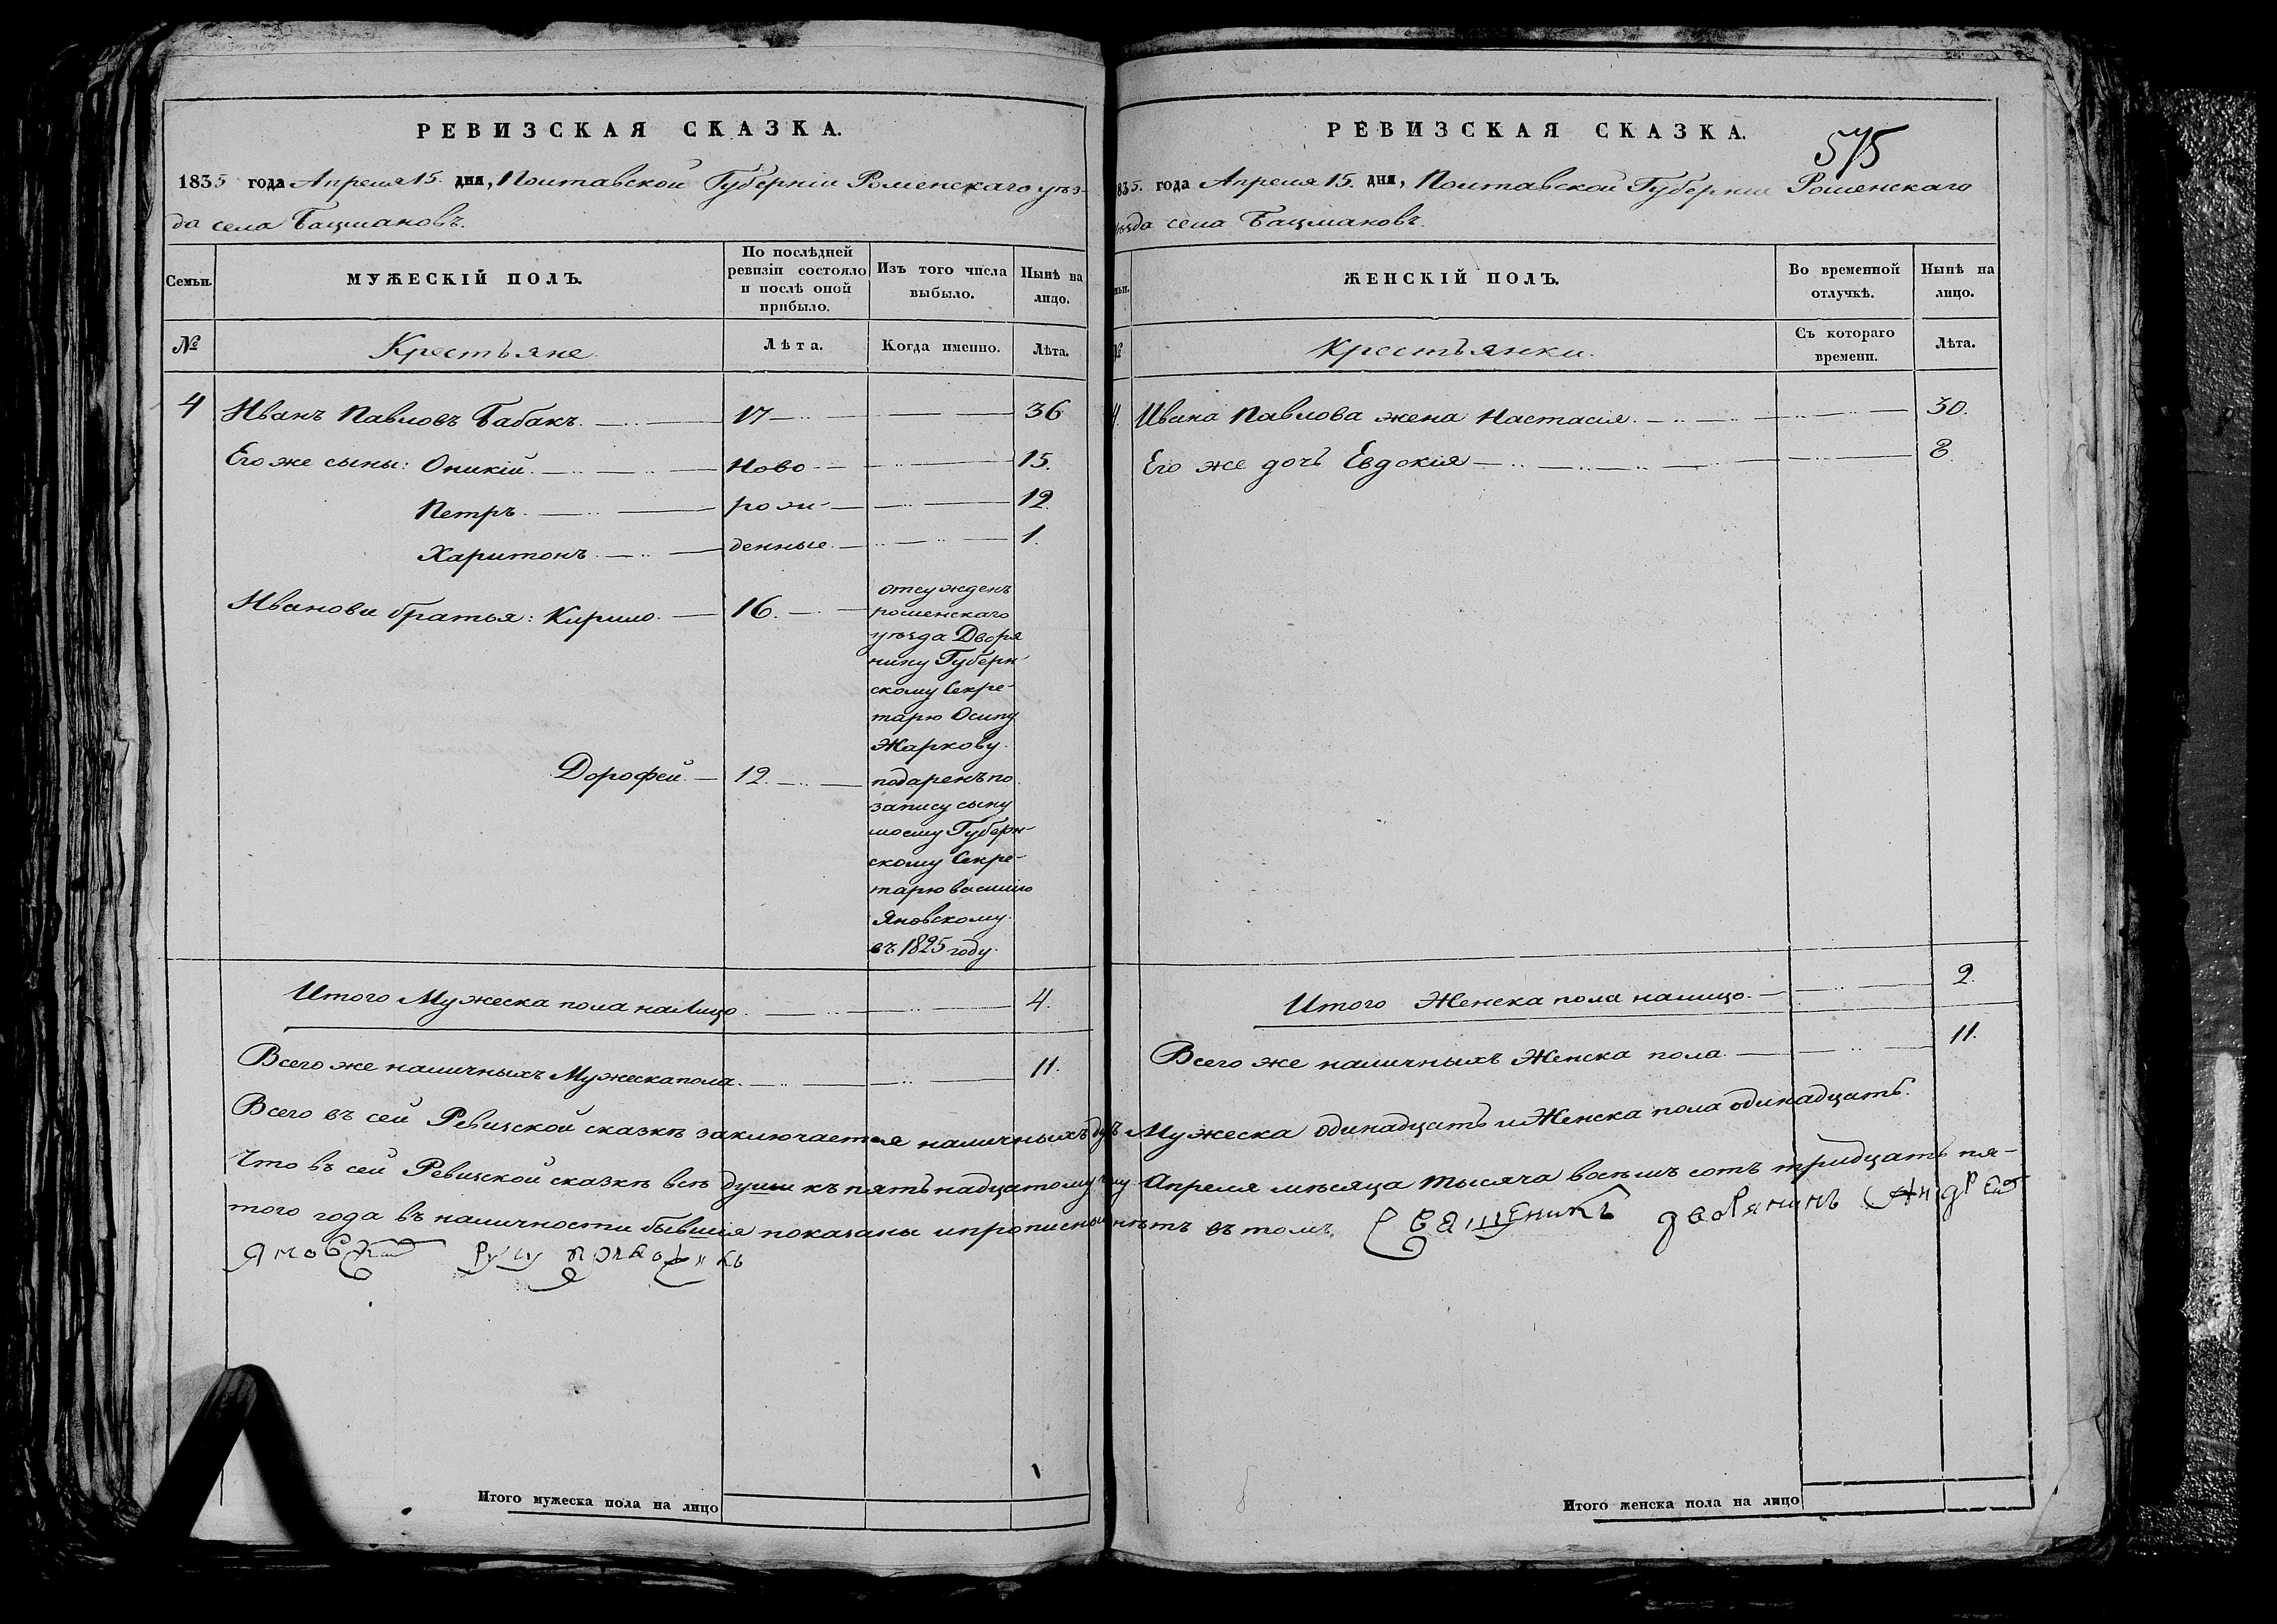 РЕВИЗСКАЯ СКАЗКА.
1835 года Апреля 15. дня, Полтавской Губерніи Роменскаго уѣз-
да села Бацмановъ.
Семьи.
МУЖЕСКІЙ ПОЛЪ.
По послѣдней
ревизіи состояло
и послѣ оной
прибыло.
Изъ того числа
выбыло.
Нынѣ на
лицо.
№
Крестьяне.
Лѣта.
Когда именно.
Лѣта.
4 Иванъ Павловъ Бабакъ. 17 36
Его же сыны: Оникій. Ново- 15.
Петръ. рож- 12.
Харитонъ. денные. 1.
Иванови братья: Кирило. 16. отсужденъ
роменскаго
уѣзда Дворя
нину Губерн-
скому Секре-
тарю Осипу
Жаркову.
Дорофей. 12. подаренъ по
запису сыну
моему Губерн-
скому Секре-
тарю василию
Яновскому.
въ 1825 году.
Итого Мужеска пола налицо. 4.
Всего же наличныхъ Мужеска пола. 11.
РЕВИЗСКАЯ СКАЗКА.
575
835. года Апреля 15. дня, Полтавской Губерніи Роменскаго
уѣзда села Бацмановъ.
ЖЕНСКІЙ ПОЛЪ.
Во временной
отлучкѣ.
Нынѣ на
лицо.
№
Крестьянки.
Съ котораго
времени.
Лѣта.
4. Ивана Павлова жена Настасия. 30.
Его же дочь Евдокия 8.
Итого Женска пола налицо. 2.
Всего же наличныхъ Женска пола. 11.
Всего въ сей Ревизской сказкѣ заключается наличныхъ душъ Мужеска одинадцать и Женска пола одинадцать.
Что въ сей Ревизской сказкѣ всѣ души къ пятьнадцатому числу Апреля мѣсяца тысяча восемь сотъ тридцать пя-
того года въ наличности бывшия показаны и прописныхъ нѣтъ въ томъ. Священикъ дворянинъ Андрей
Яновский
Итого мужеска пола на лицо
Итого женска пола на лицо